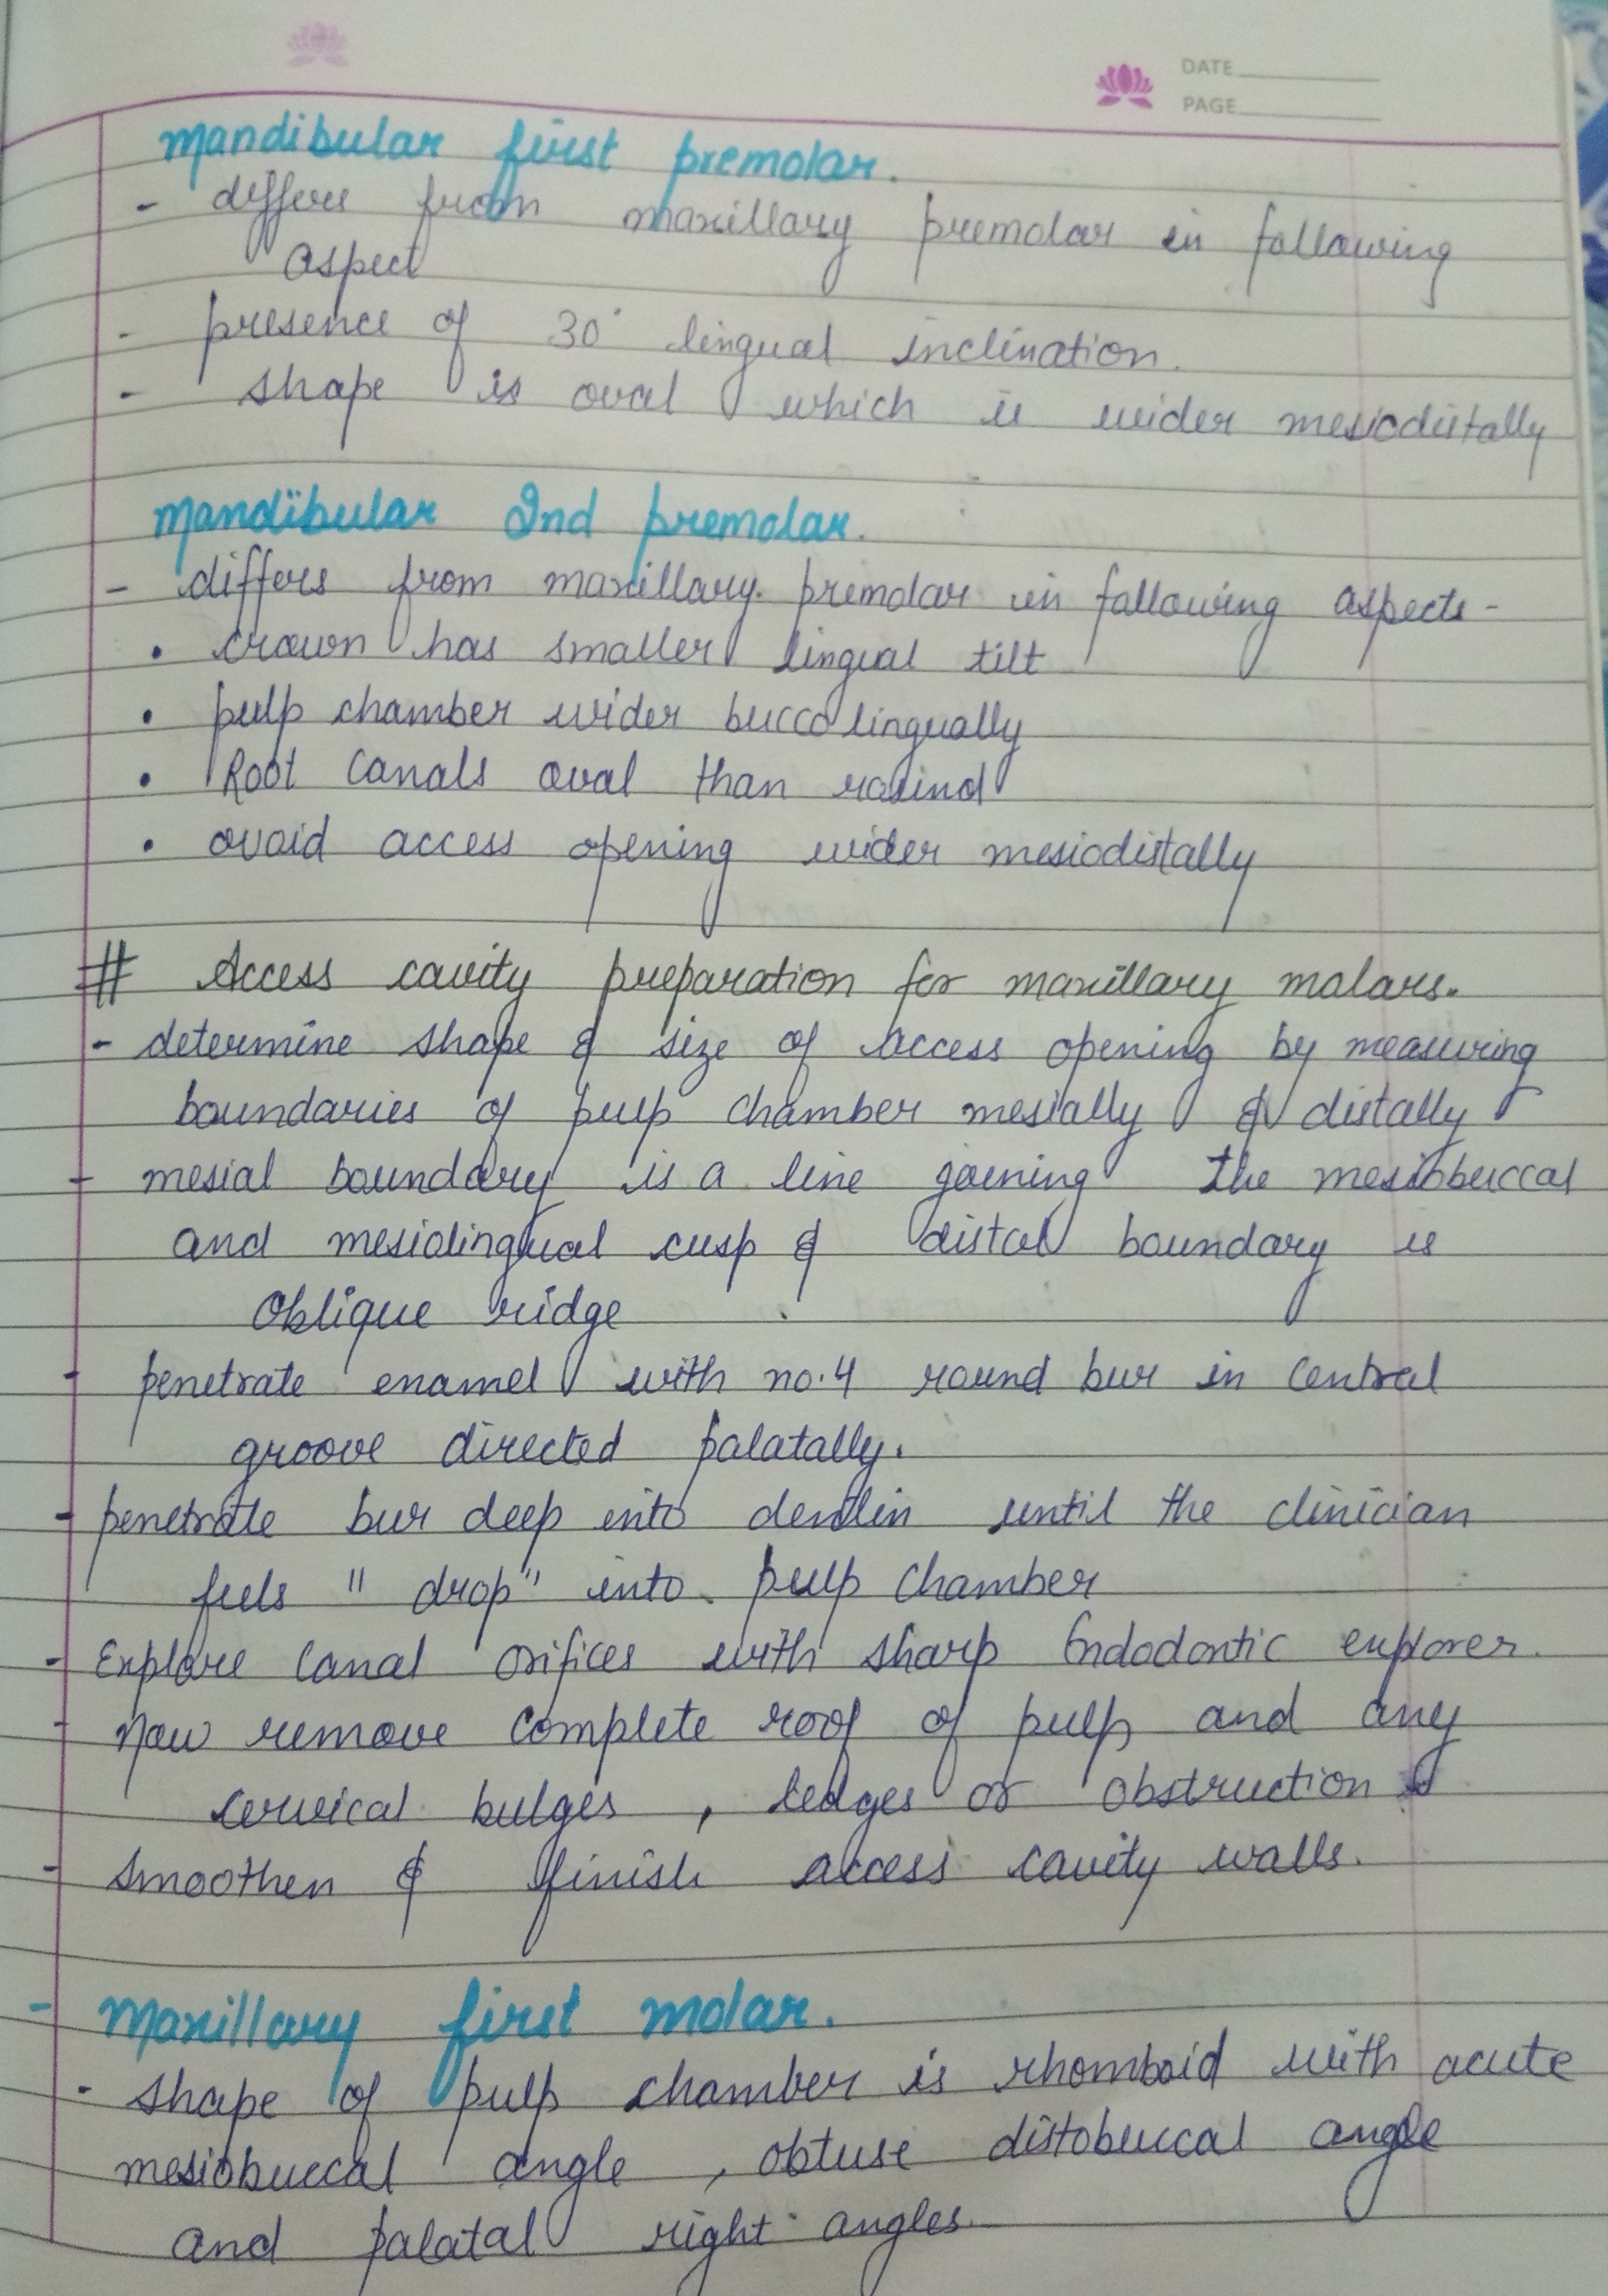 DATE
PAGE
mandibular first premolar.
- differs from maxillary premolar in following
aspect
- presence of 30° lingual inclination.
- shape is oval which is wider mesiodistally
mandibular 2nd premolar.
- differs from maxillary premolar in following aspects-
• crown has smaller lingual tilt
• pulp chamber wider buccolingually
• Root canals oval than round
• ovoid access opening wider mesiodistally
# Access cavity preparation for maxillary molars.
- determine shape & size of access opening by measuring
boundaries of pulp chamber mesially & distally
- mesial boundary is a line joining the mesiobuccal
and mesiolingual cusp & distal boundary is
oblique ridge
- penetrate enamel with no.4 round bur in central
groove directed palatally.
- penetrate bur deep into dentin until the clinician
feels "drop" into pulp chamber
- Explore canal orifices with sharp Endodontic explorer.
- Now remove complete roof of pulp and any
cervical bulges, ledges or obstruction
- smoothen & finish access cavity walls.
- Maxillary first molar.
- shape of pulp chamber is rhomboid with acute
mesiobuccal angle, obtuse distobuccal angle
and palatal right angles.